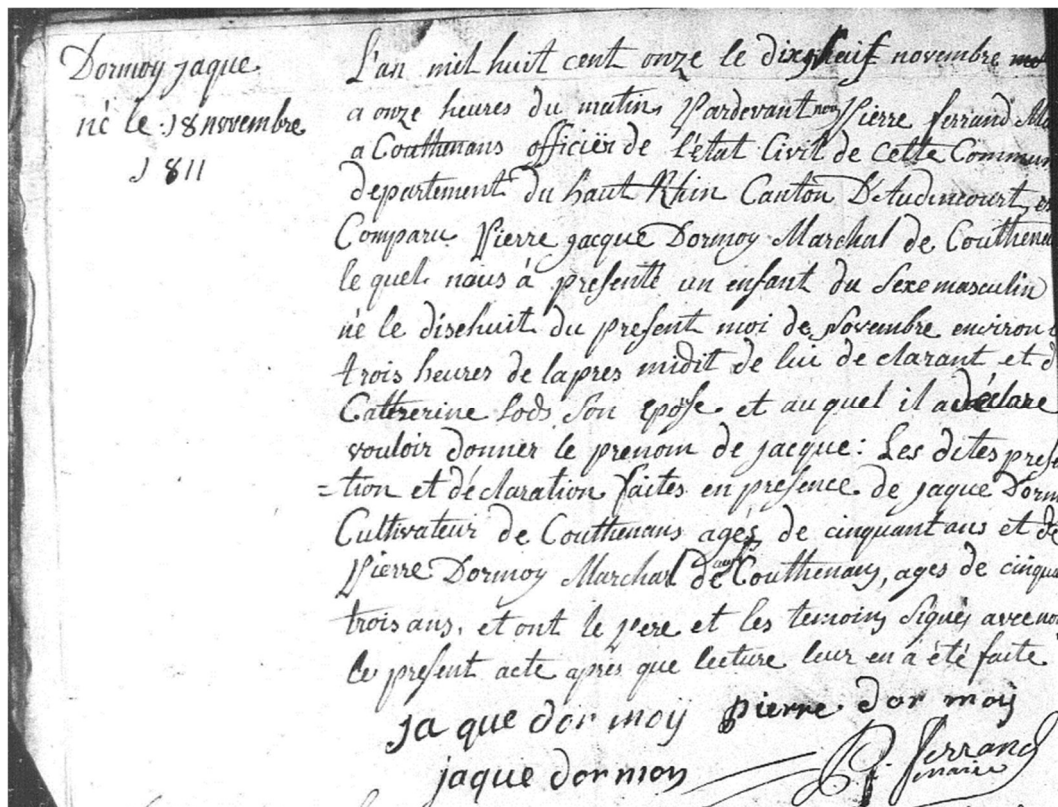 Dormoy jaque
né le 18 novembre
1811
L'an mil huit cent onze le dixneuf novembre
a onze heures du matin Pardevant nous Pierre ferrand
a Couthenans officiër de l'état Civil de cette Commun
departement du haut Rhin Canton D'Audincourt, es
Comparu Pierre jacque Dormoy Marchal de Couthena
le quel nous à presenté un enfant du Sexe masculin
né le disehuit du present moi de Novembre environ
trois heures de lapres midit de lui de clarant et d
Cattrerine Lods Son epose et au quel il a déclare
vouloir donner le prenom de jacque : Les dites prese
=tion et déclaration faites en presence de jaque Dorm
Cultivateur de Couthenans agés de cinquant ans et de
Pierre Dormoy Marchal de Couthenans, ages de cinqua
trois ans, et ont le pere et les temoins Signés avec no
le present acte après que lecture leur en a été faite
ja que dor moy pierre dor moy
jaque dormoy P. Ferrand
maire